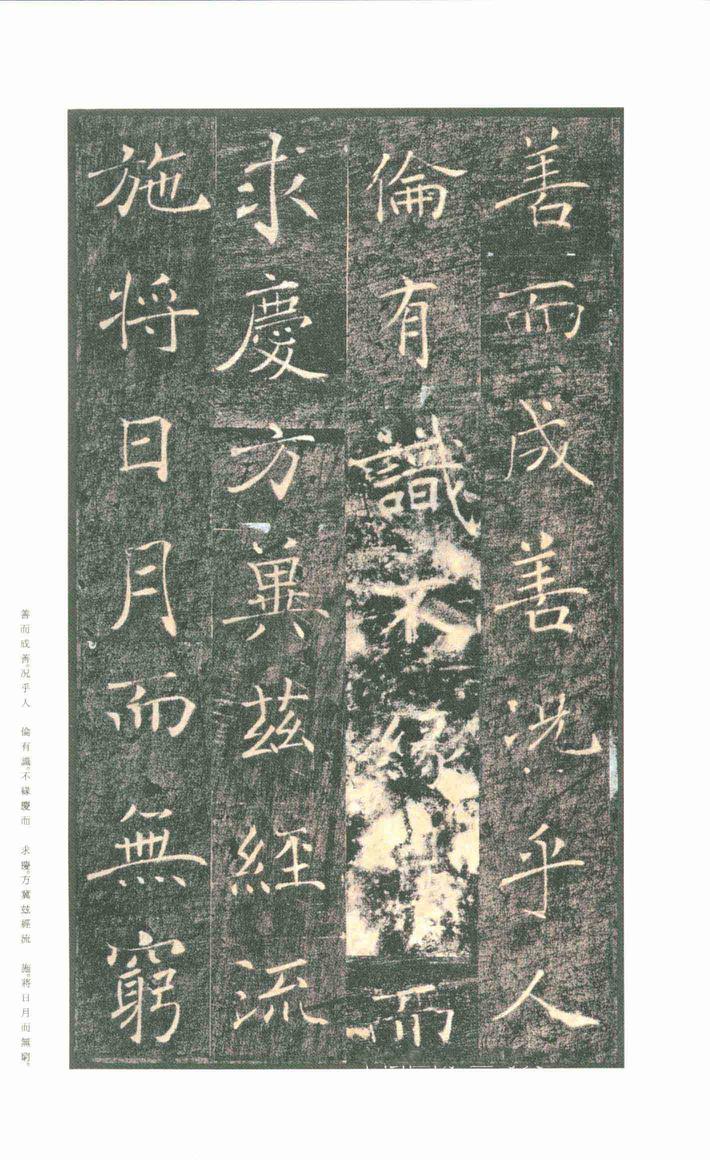 善而成善況乎人
倫有識不緣慶而
求慶方兾茲經流
施將日月而無窮
善而成善。況乎人 倫有識。不緣慶而 求慶。方冀茲經流 施。將日月而無窮。